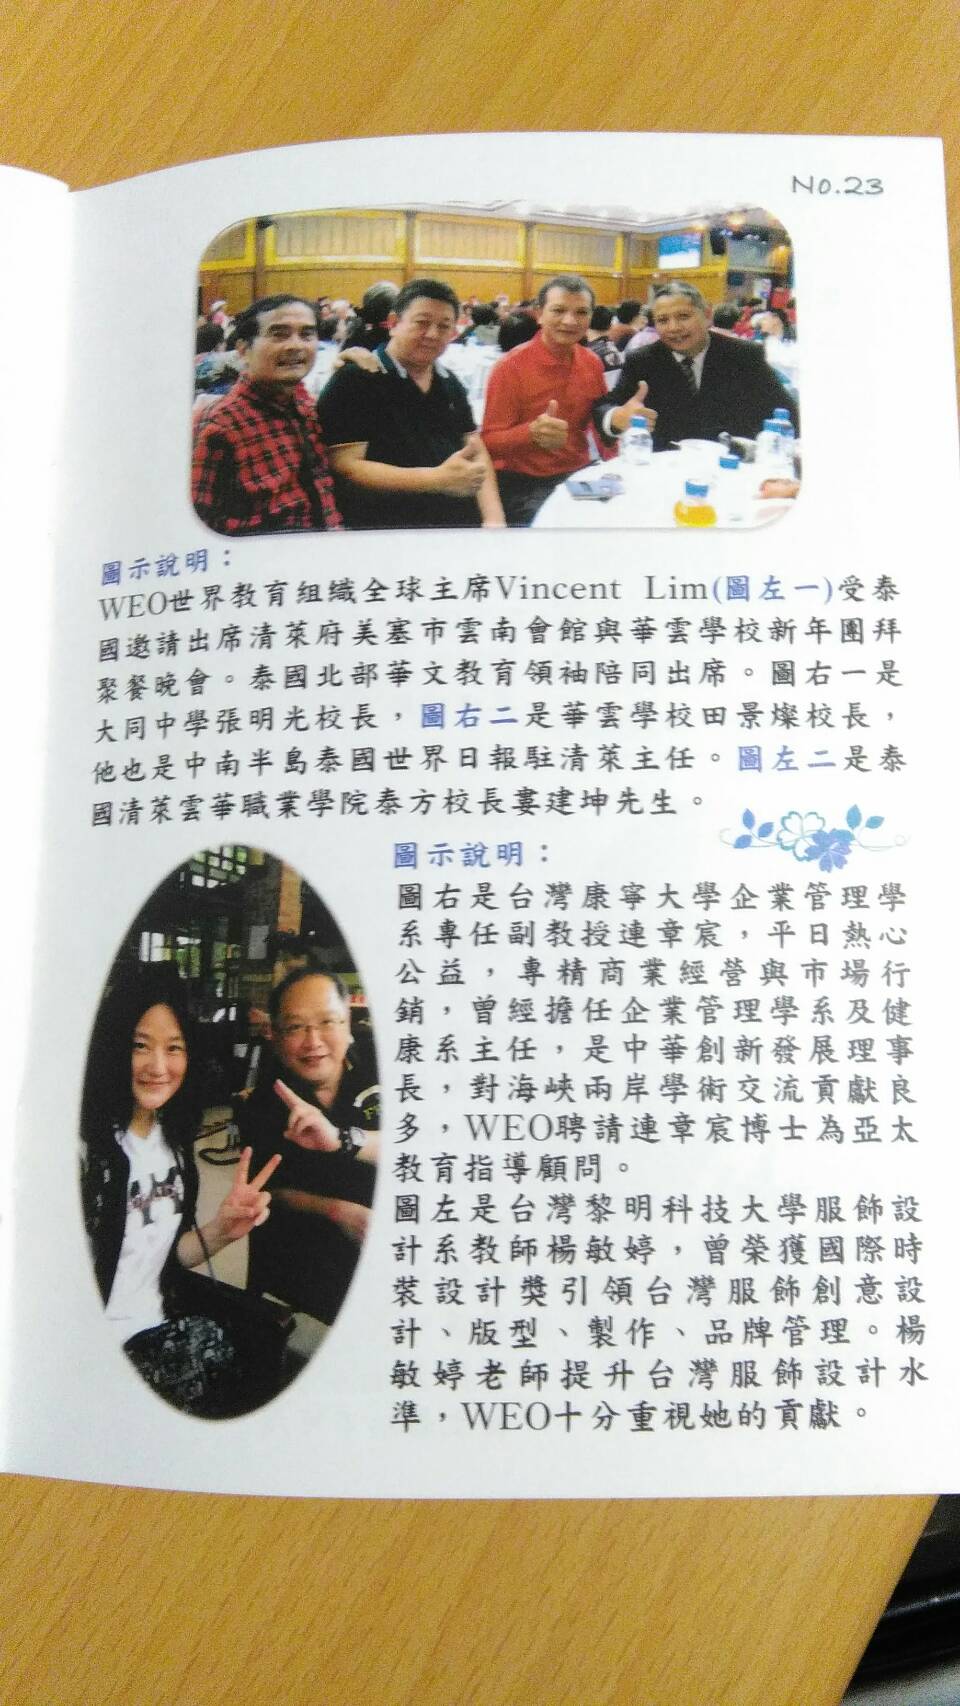 No.23
圖示說明：
WEO世界教育組織全球主席Vincent Lim(圖左一)受泰
國邀請出席清萊府美塞市雲南會館與華雲學校新年團拜
聚餐晚會。泰國北部華文教育領袖陪同出席。圖右一是
大同中學張明光校長，圖右二是華雲學校田景燦校長，
他也是中南半島泰國世界日報駐清萊主任。圖左二是泰
國清萊雲華職業學院泰方校長婁建坤先生。
圖示說明：
圖右是台灣康寧大學企業管理學
系專任副教授連章宸，平日熱心
公益，專精商業經營與市場行
銷，曾經擔任企業管理學系及健
康系主任，是中華創新發展理事
長，對海峽兩岸學術交流貢獻良
多，WEO聘請連章宸博士為亞太
教育指導顧問。
圖左是台灣黎明科技大學服飾設
計系教師楊敏婷，曾榮獲國際時
裝設計獎引領台灣服飾創意設
計、版型、製作、品牌管理。楊
敏婷老師提升台灣服飾設計水
準，WEO十分重視她的貢獻。